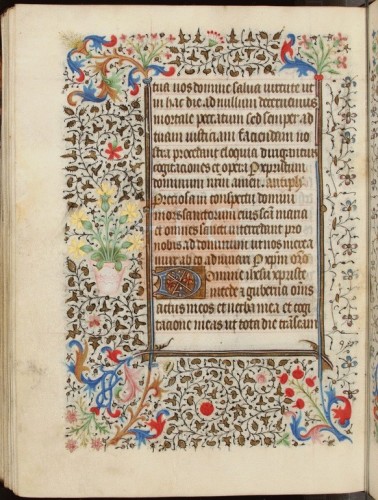 tua nos domine salva virtute ut
in hac die ad nullum declinemus
mortale peccatum sed semper ad
tuam iusticiam faciendam no
stra procedant eloquia dirigantur
cogitationes et opera Per xpristum
dominum nrm amen. antiph
Preciosa in conspectu domini
mors sanctorum eius sca maria
et omnes sancti intercedant pro
nobis ad dominum ut nos merea
mur ab eo adiuvari Per xpm oro
Domine ihesu xpriste
intcede & guberna oms
actus meos et verba mea et cogi
tationes meas ut tota die tralseam